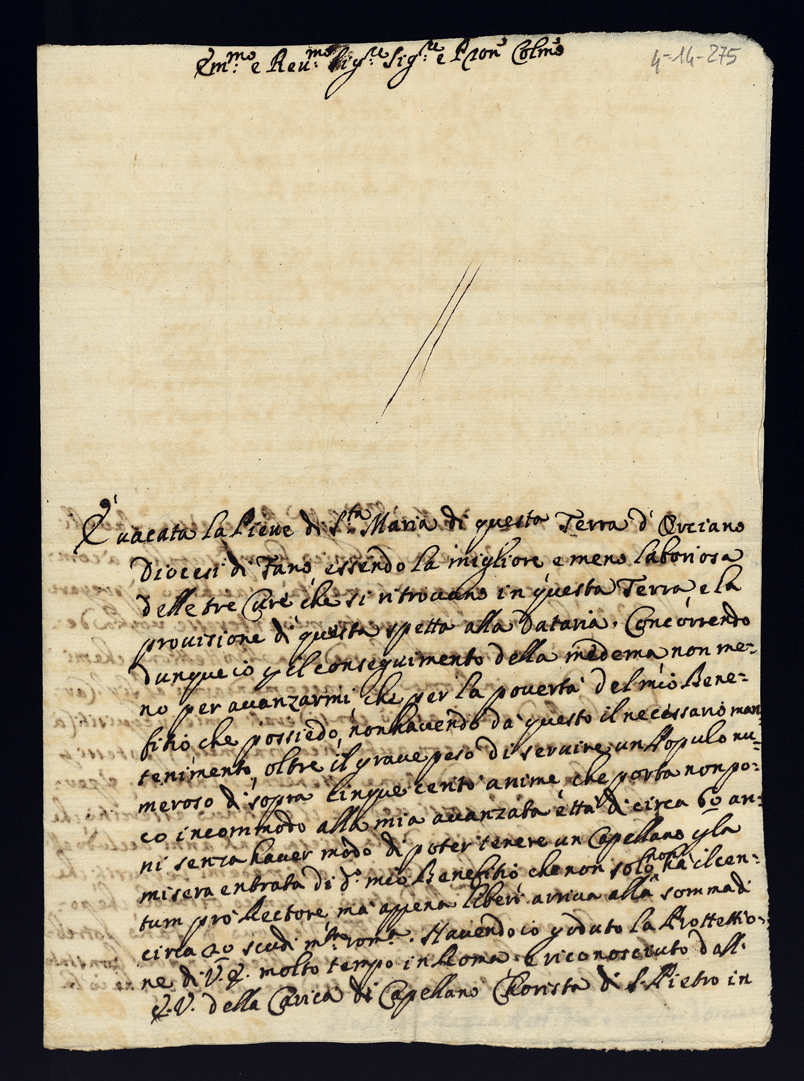 Em.mo e Reu.mo Sig.re Sig.re e Pron. Colmo
4-14-275
È uacata la Pieue di S.ta Maria di questa Terra d'Orciano
Diocesi di Fano essendo la migliore e meno laboriosa
delle tre Cure che si ritrouano in questa Terra e la
prouisione di questa spetta alla Dataria. Concorrendo
dunque io p il conseguimento della medema non me=
no per auanzarmi che per la pouertà del mio Bene=
fitio che possiedo, non hauendo da questo il necessario man=
tenimento, oltre il graue peso di seruire un Populo nu=
meroso di sopra cinque cento anime che porta non po=
co incommodo alla mia auanzata età di circa 60 an=
ni senza hauer modo di poter tenere un Capellano p la
misera entrata di d.o mio Benefitio che non solo non ha il cen=
tum pro Rectore ma appena liberi arriua alla somma di
circa 20 scudi m.ta rom.a. Hauendo io goduto la Prottettio=
ne di V.E. molto tempo in Roma e riconosciuto dall'
E.V. della Carica di Capellano Chorista di S. Pietro in